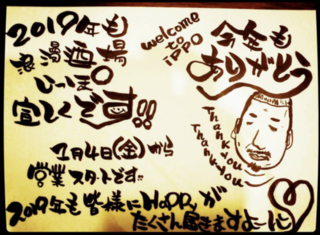 2019年も
浪漫酒場
いっぽ
宜しくです!!
welcome
to
iPPO
今年も
ありがとう
Thank you
Thank you
1月4日(金)から
営業スタートです!!
2019年も皆様にHAPPYが
たくさん届きますよーに